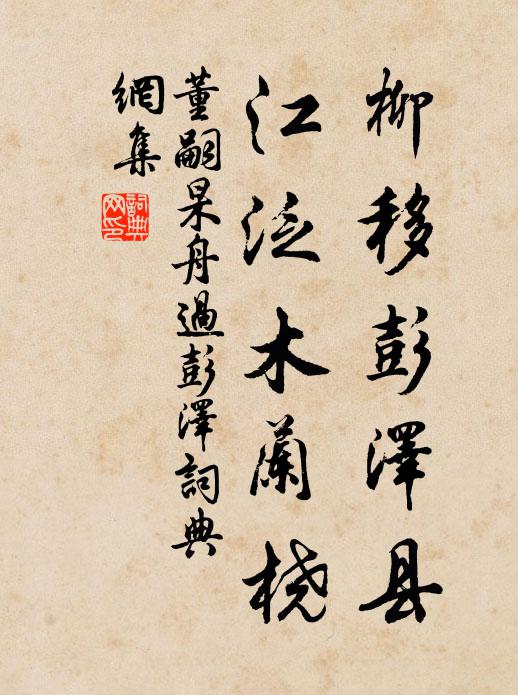 柳移彭澤县
江泛木蘭桡
董嗣杲舟過彭澤詞典
網集
詞典
网印